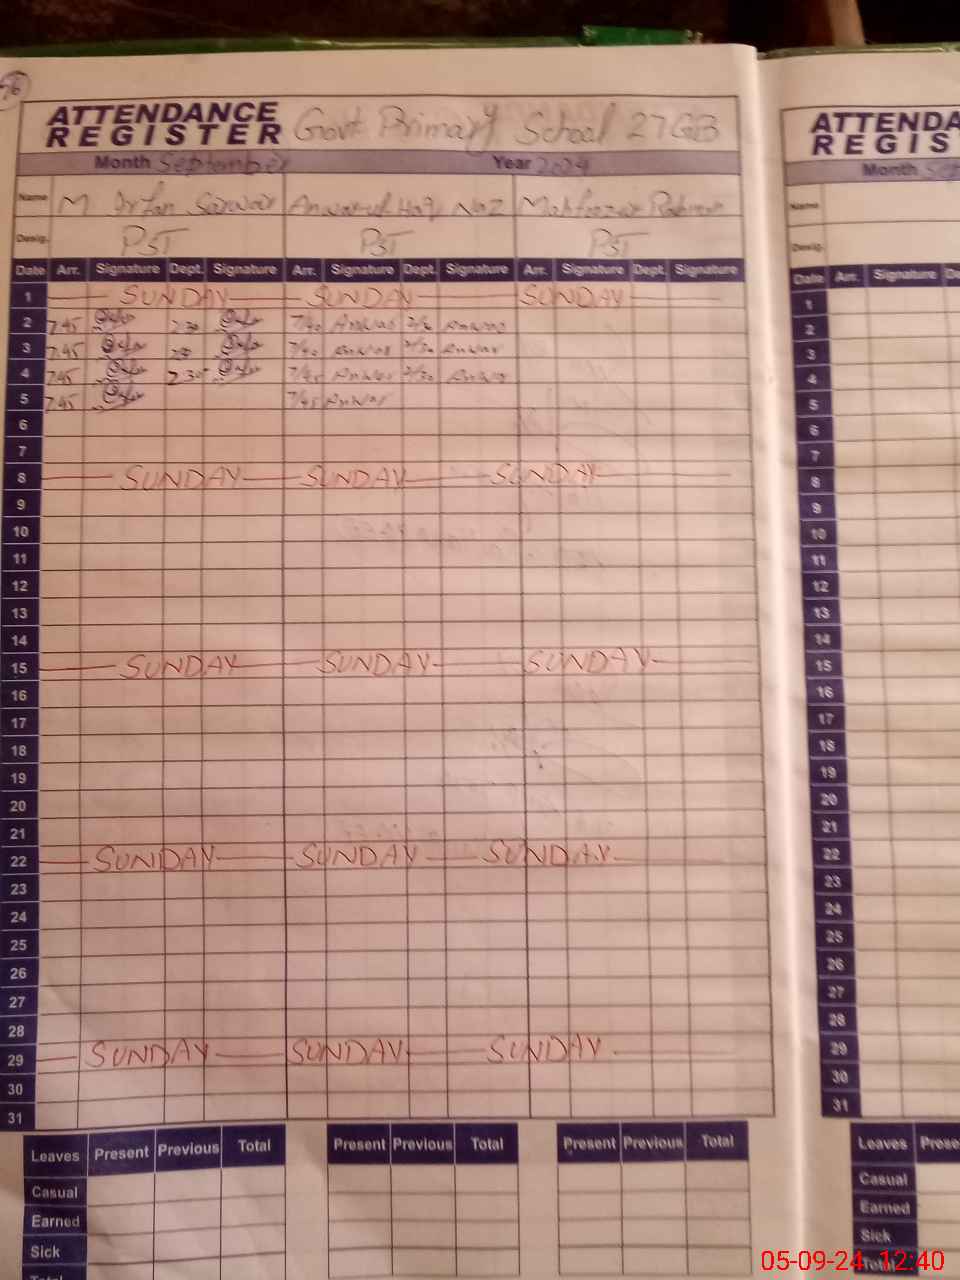 ATTENDANCE REGISTER Govt Primary School 27GB
Month September Year 2024
Name M Irfan Sarwar Anwar-ul-Haq Naz Mahfooz ur Rehman
Desig. PST PST PST
Date Arr. Signature Dept. Signature Arr. Signature Dept. Signature Arr. Signature Dept. Signature
1 SUNDAY SUNDAY SUNDAY
2 7.45 2.30 7/40 Anwar 2/30 Anwar
3 7.45 7/40 Anwar 2/30 Anwar
4 7.45 2.30 7/45 Anwar 2/30 Anwar
5 7.45 7/45 Anwar
6
7
8 SUNDAY SUNDAY SUNDAY
9
10
11
12
13
14
15 SUNDAY SUNDAY SUNDAY
16
17
18
19
20
21
22 SUNDAY SUNDAY SUNDAY
23
24
25
26
27
28
29 SUNDAY SUNDAY SUNDAY
30
31
Leaves Present Previous Total Present Previous Total Present Previous Total
Casual
Earned
Sick
Total
ATTENDA
REGIS
Month
Name
Desig.
Date Arr. Signature De
1
2
3
4
5
6
7
8
9
10
11
12
13
14
15
16
17
18
19
20
21
22
23
24
25
26
27
28
29
30
31
Leaves Prese
Casual
Earned
Sick
Total
05-09-24 12:40